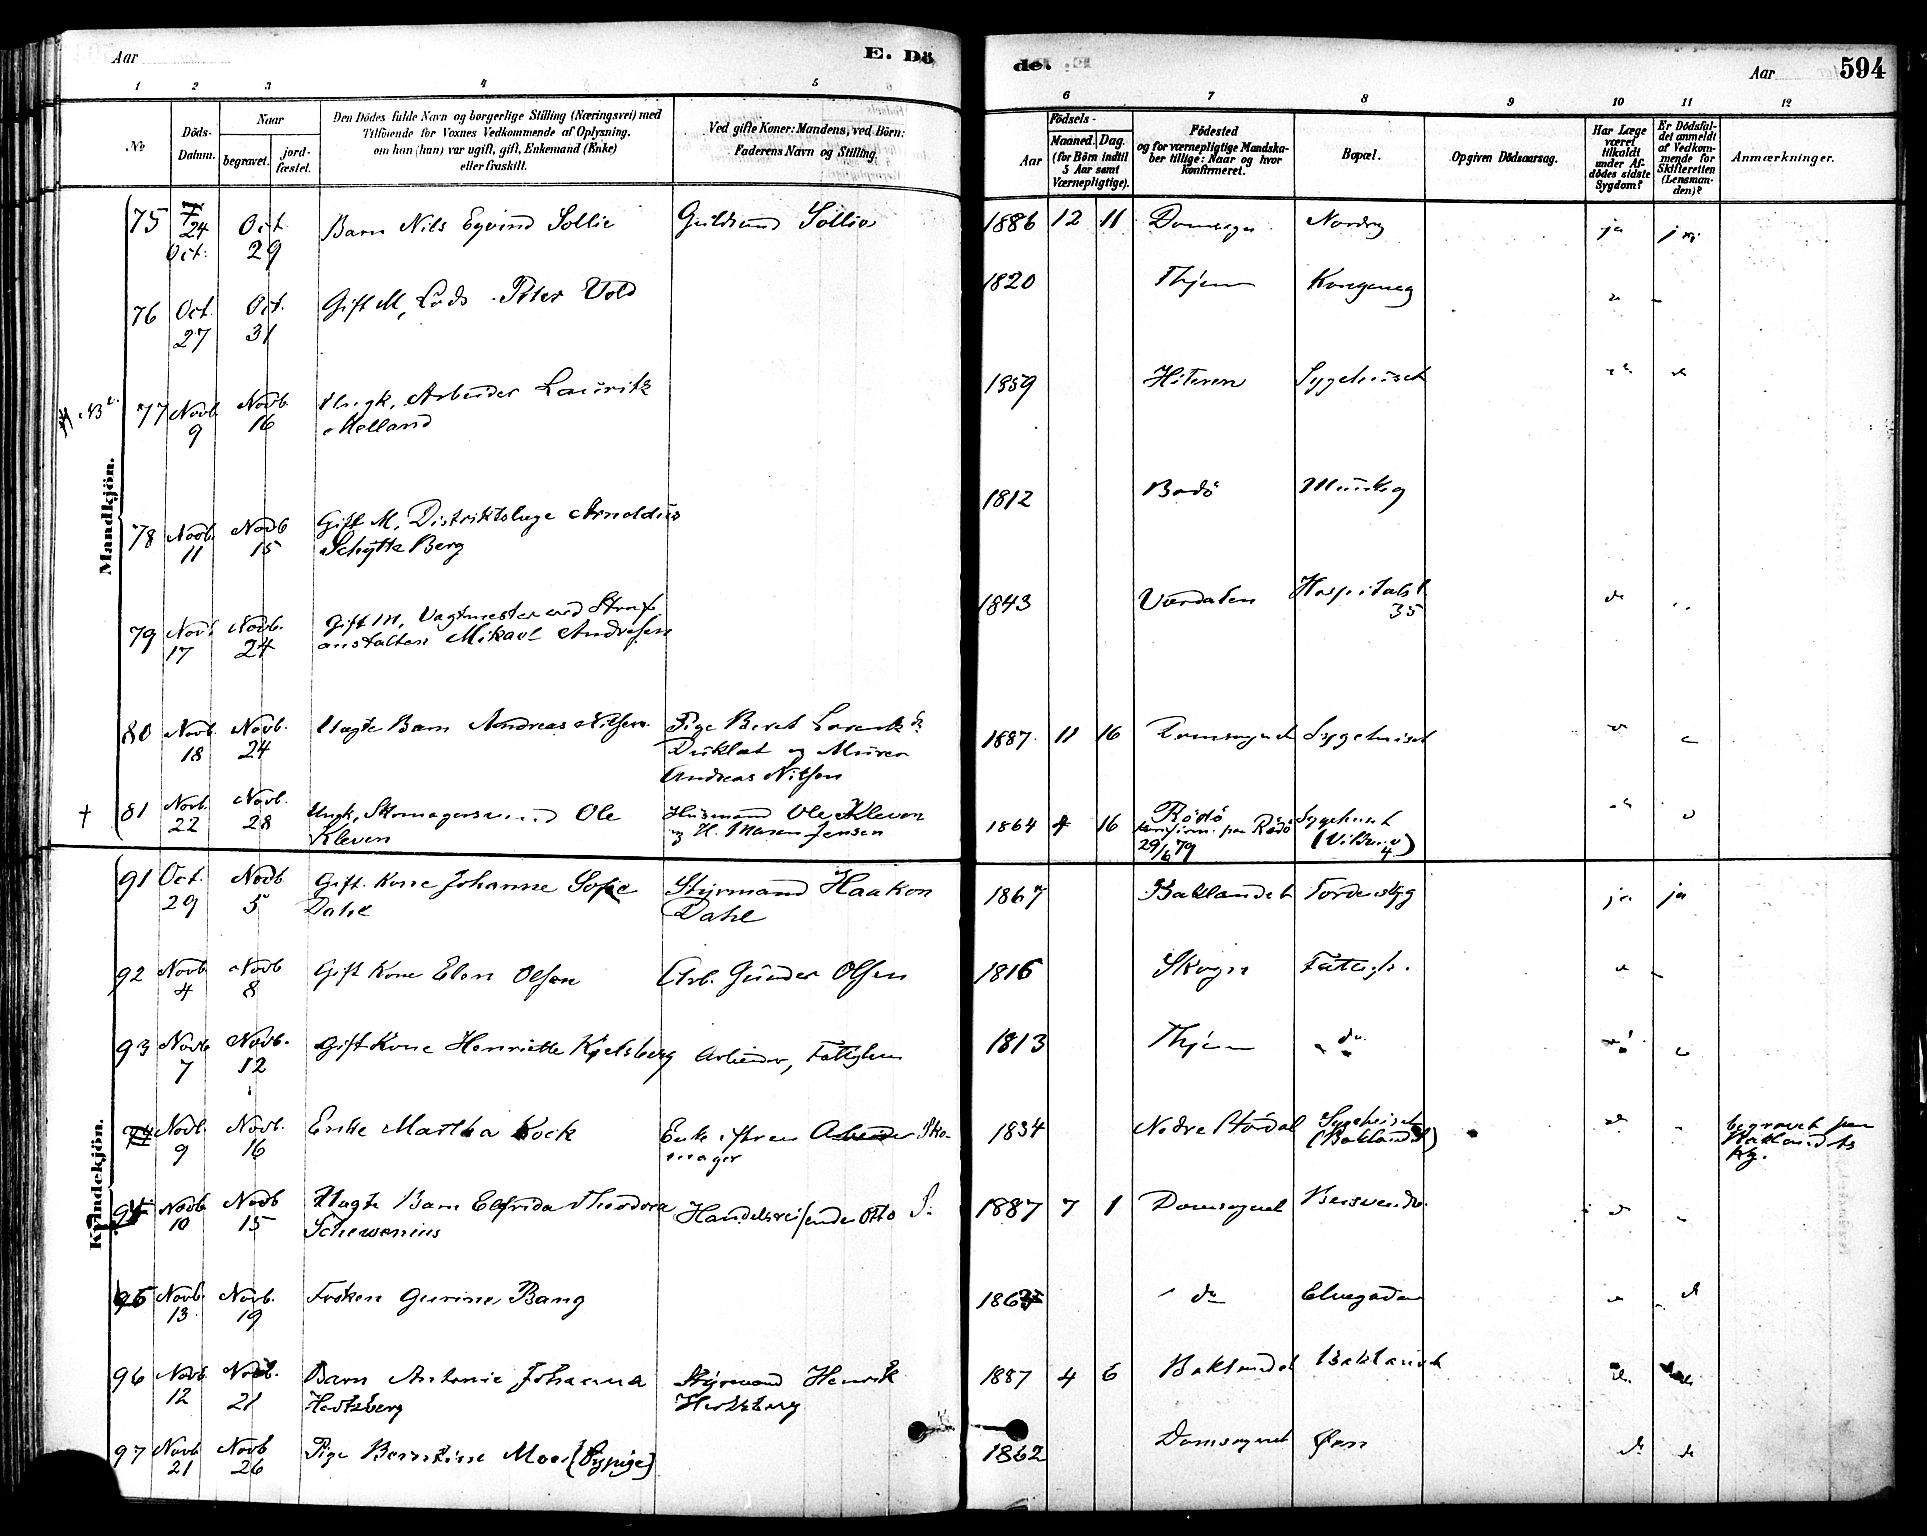 Aar
E. Dö
de.
Aar
594
1 2 3 4 5 6 7 8 9 10 11 12
No
Döds-
Datum.
Naar
begravet.
jord-
fæstet.
Den Dödes fulde Navn og borgerlige Stilling (Næringsvei) med
Tilföiende for Voxnes Vedkommende af Oplysning.
om han (hun) var ugift, gift, Enkemand (Enke)
eller fraskilt.
Ved gifte Koner: Mandens, ved Börn:
Faderens Navn og Stilling.
Födsels-
Aar
Maaned. Dag.
(for Börn indtil
5 Aar samt
Værnepligtige).
Födested
og for værnepligtige Mandska-
ber tillige: Naar og hvor
konfirmeret.
Bopæl.
Opgiven Dödsaarsag.
Har Læge
været
tilkaldt
under Af-
dödes sidste
Sygdom?
Er Dödsfal-
det anmeldt
af Vedkom-
mende for
Skifteretten
(Lensman-
den)?
Anmærkninger.
Mandkjön.
75 24 Oct. Oct. 29 Barn Nils Eyvind Sollie Sollie 1886 12 11 ja
76 Oct. 27 Oct. 31 Gift M, Lods Peter Vold 1820 Thjem
77 Novb. 9 Novb. 16 Ungk, Arbeider Lauritz
Melland 1859 Hiteren Sygehuset
78 Novb. 11 Novb. 15 Gift M, Distriktslæge Arnoldus
Schytte Berg 1812 Bodö Munkg
79 Novb. 17 Novb. 24 Gift M, Vagtmester ved Straf
anstalten Mikael Andresen 1843 Værdalen Hospitalsl
35
80 Novb. 18 Novb. 24 Uægte Barn Andreas Nilsen Pige Beret
og Murer
Andreas Nilsen 1887 11 16 Domsognet Sygehuset
† 81 Novb. 22 Novb. 28 Ungk, Skomagersvend Ole
Kleven Husmand Ole Kleven
og H. Maren Jensen 1864 4 16 Rödö
konfirm. paa Rödö
29/6 79 Sygehuset
Kvindekjön.
91 Oct. 29 Novb 5 Gift Kone Johanne Sofie
Dahl Styrmand Haakon
Dahl 1867 Baklandet Tordenskg ja ja
92 Novb 4 Novb 8 Gift Kone Elen Olsen Arb. Gunder Olsen 1816 Skogn Fattigh.
93 Novb 7 Novb. 12 Gift Kone Henriette Kjelsberg Arbeider, Fattiglem 1813 Thjem do
94 Novb. 9 Novb. 16 Enke Martha Kock Enke efter Sko-
mager 1834 Nedre Stördal Sygehuset
(Baklandet) begravet paa
Baklandets
kg.
Novb 10 Novb 15 Uægte Barn Elfrida Theodora
Schewenius Handelsreisende Otto S. 1887 7 1 Domsognet
95 Novb. 13 Novb. 19 Fröken Gurine Bang do Elvegaden
96 Novb 12 Novb. 21 Barn Antonie Johanna
Hertzberg Styrmand Henrik
Hertzberg 1887 4 6 Baklandet Baklandet
97 Novb 21 Novb 26 Pige Berntine Moe (Sypige) 1862 Domsognet Öen